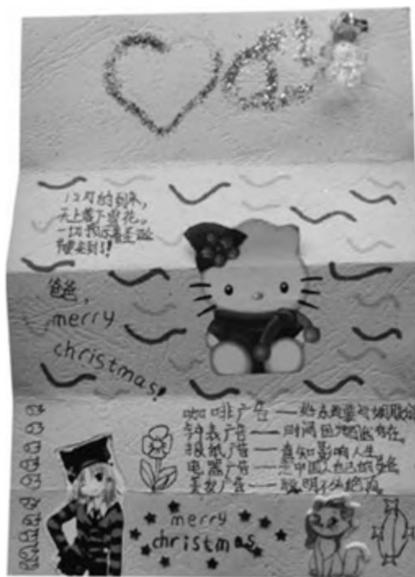 12月的到来,
天上落下雪花。
一切预示着圣诞
节要来到了!
爸爸,
merry
christmas!
咖啡广告——好东西要
钟表广告——时间因你而存在。
报纸广告——真知影响人生。
电器广告——中国人自己的
美发广告——聪明不必绝顶。
merry
christmas